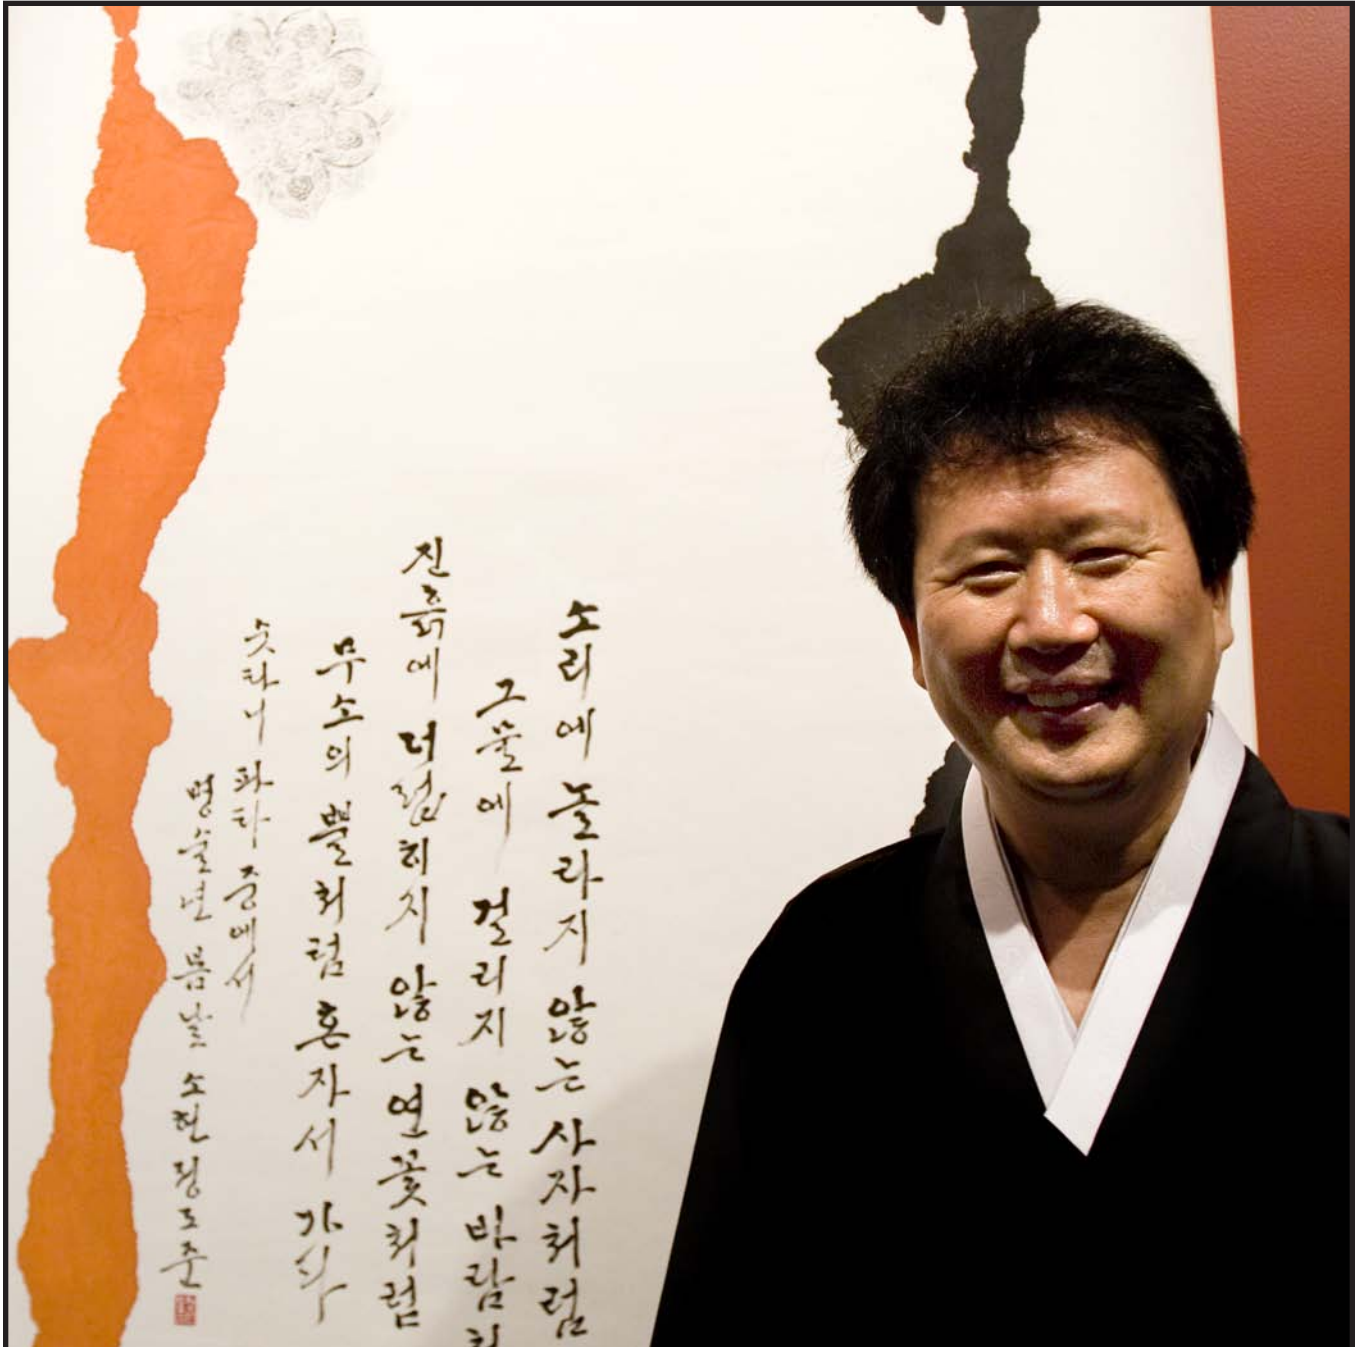 소리에 놀라지 않는 사자처럼
그물에 걸리지 않는 바람처
진흙에 더럽히지 않는 연꽃처럼
무소의 뿔처럼 혼자서 가라
숫타니파타 중에서
병술년 봄날 소헌 정도준